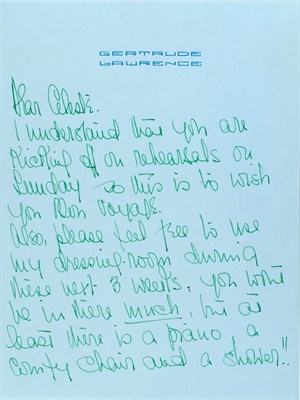 GERTRUDE
LAWRENCE
Dear Celeste.
I understand that you are
Kicking off on rehearsals on
Sunday so this is to wish
you Bon voyage.
Also, please feel free to use
my dressing-room during
these next 3 weeks, you wont
be in there much, but at
least there is a piano a
comfy chair and a shower!!